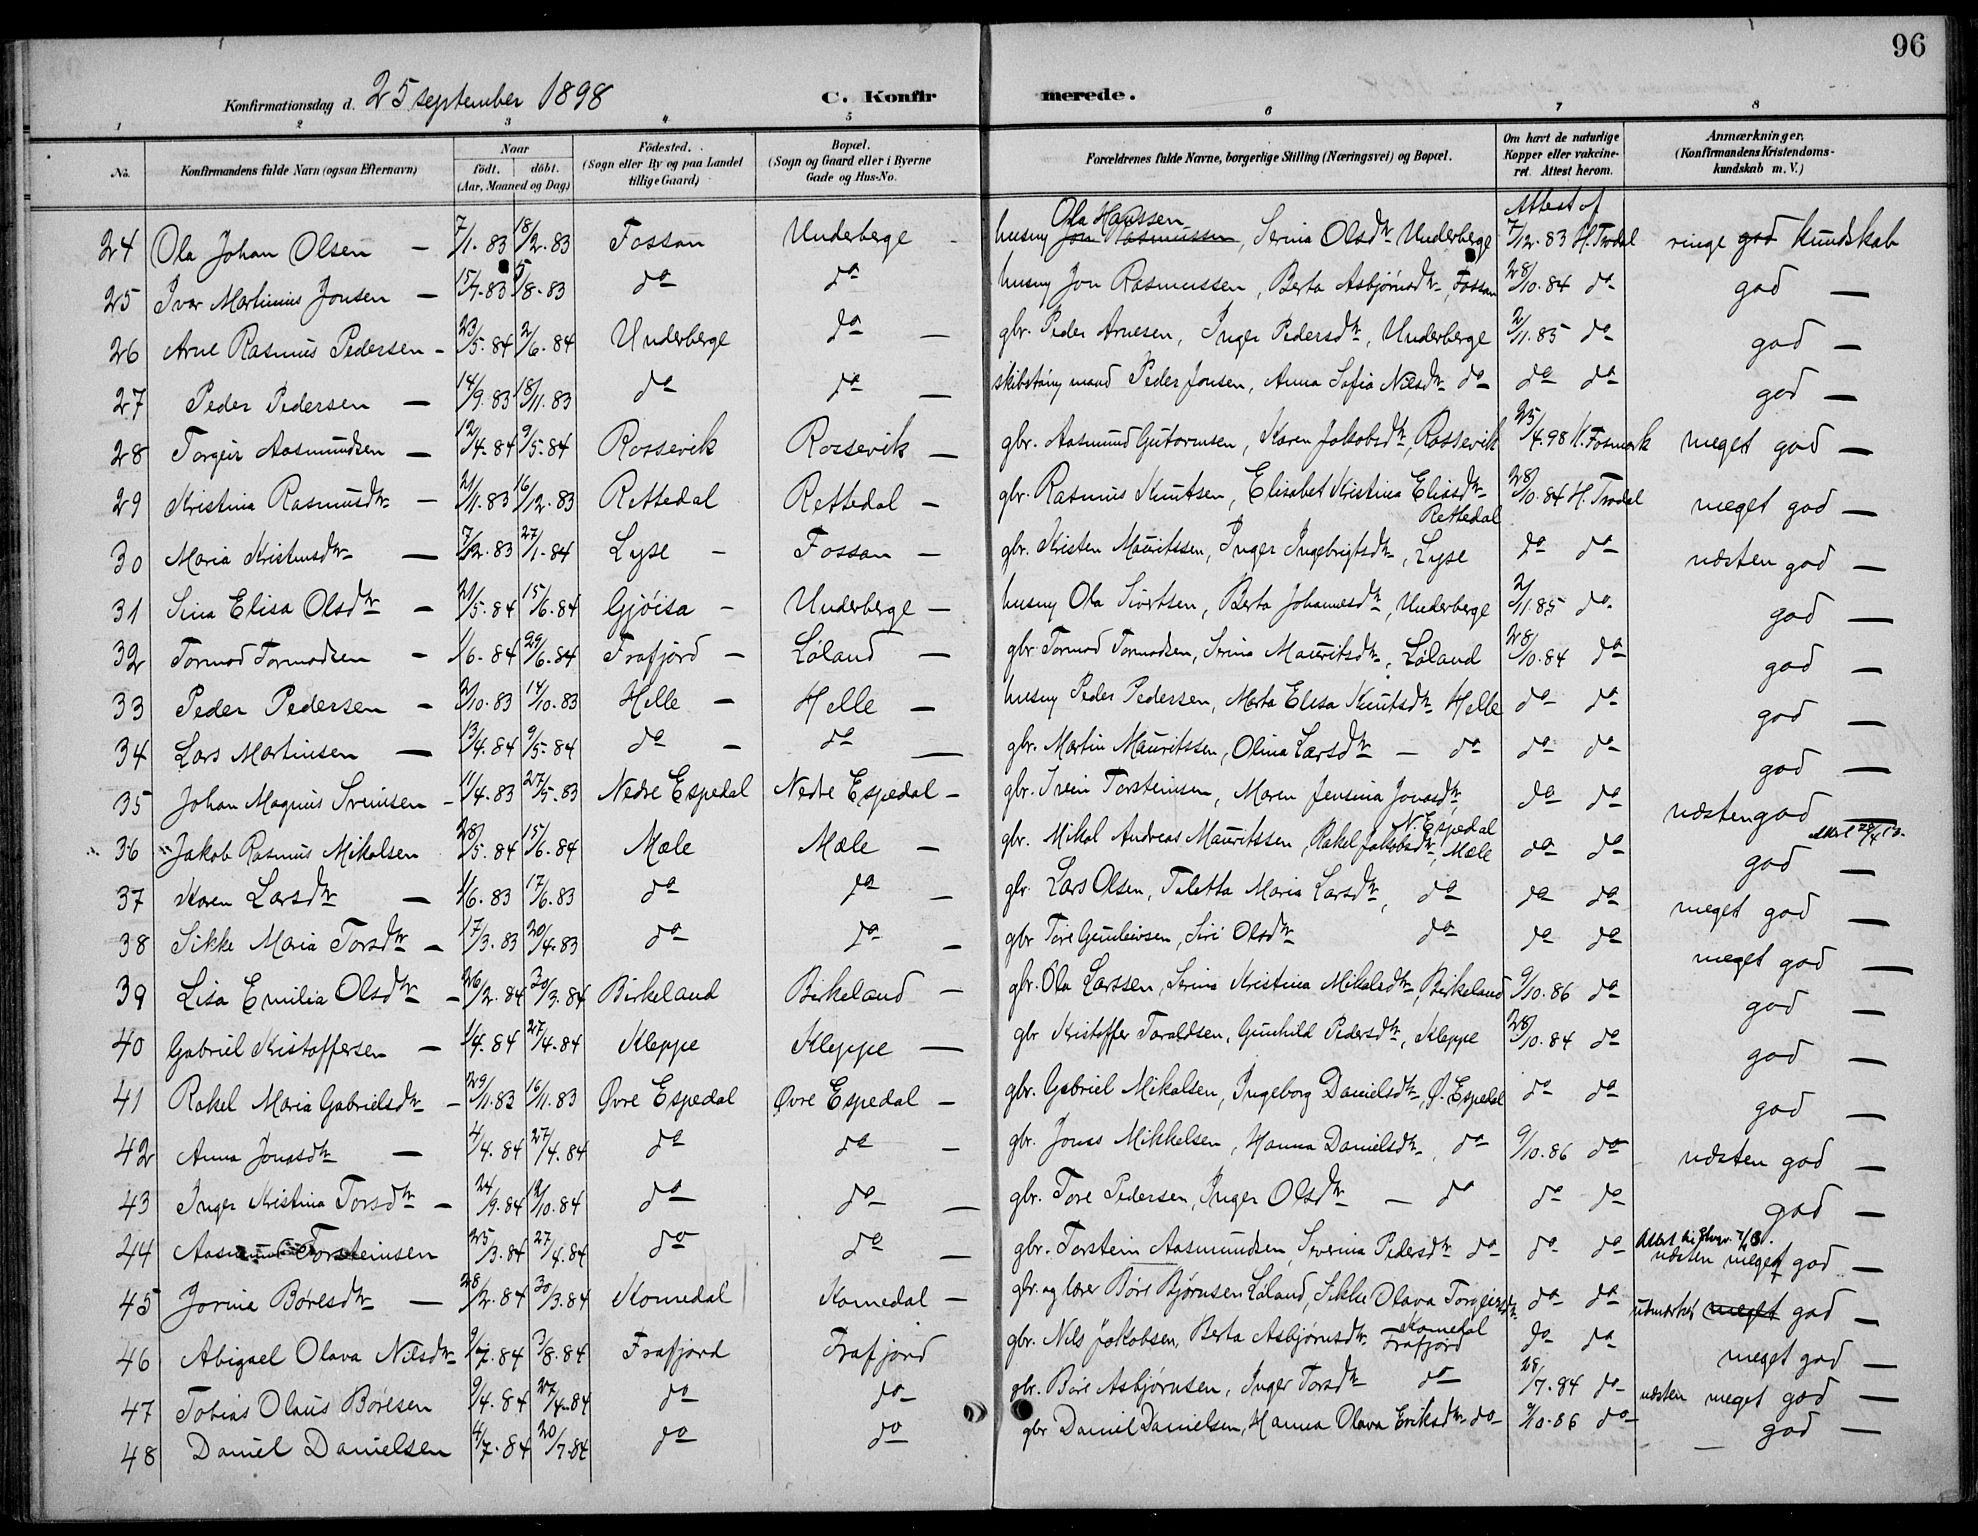 96
Konfirmationsdag d. 25 september 1898 C. Konfirmerede.
1 2 3 4 5 6 7 8
No. Konfirmandens fulde Navn (ogsaa Efternavn) Naar født. døbt. (Aar, Maaned og Dag) Födested. (Sogn eller By og paa Landet tillige Gaard) Bopæl. (Sogn og Gaard eller i Byerne Gade og Hus-No. Forældrenes fulde Navne, borgerlige Stilling (Næringsvei) og Bopæl. Om havt de naturlige Kopper eller vakcineret. Attest herom. Anmærkninger. (Konfirmandens Kristendomskundskab m. V.)
Ola Hanssen Attest af
24 Ola Johan Olsen — 7/1. 83 18/2. 83 Fossan Underberge - husmg Jon Rasmussen, Serina Olsdtr Underberge 7/12. 83 H. Trodal ringe god Kundskab
25 Ivar Martinius Jonsen — 15/7. 83 5/8. 83 do do husmg Jon Rasmussen, Berta Asbjørnsdtr, Fossan 28/10. 84 do god —
26 Arne Rasmus Pedersen - 23/5. 84 2/6. 84 Underberge do — gbr. Peder Arnesen, Inger Pedersdtr, Underberge 2/11. 85 do god —
27 Peder Pedersen — 14/9. 83 18/11. 83 do do — mand Peder Jonsen, Anna Sofia Nilsdtr do do do god —
28 Torgeir Aasmundsen — 12/4. 84 9/5. 84 Rossevik Rossevik — gbr. Aasmund Gutormsen, Karen Jakobsdtr, Rossevik 25/4. 98 K. Fosmark meget god —
29 Kristina Rasmusdtr — 21/11. 83 16/12. 83 Rettedal Rettedal — gbr. Rasmus Knutsen, Elisabet Kristina Eliasdtr Rettedal 28/10. 84 H. Trodal meget god —
30 Maria Kristensdtr — 7/12. 83 27/1. 84 Lyse - Fossan — gbr. Kristen Mauritssen, Inger Ingebrigtsdtr, Lyse do do næsten god —
31 Sina Elisa Olsdtr — 21/5. 84 15/6. 84 Gjøisa - Underberge — husmg Ola Sivertsen, Berta Johannesdtr, Underberge 2/11. 85 do god —
32 Tormod Tormodsen — 1/6. 84 29/6. 84 Frafjord - Løland — gbr. Tormod Tormodsen, Serina Mauritsdtr, Løland 28/10. 84 do god —
33 Peder Pedersen — 2/10. 83 14/10. 83 Helle - Helle — husmg Peder Pedersen, Marta Elisa Knutsdtr Helle do do god —
34 Lars Martinsen — 13/4. 84 9/5. 84 do - do — gbr. Martin Mauritssen, Olina Larsdtr — do do do god —
35 Johan Magnus Sveinsen - 11/4. 83 27/5. 83 Nedre Espedal Nedre Espedal - gbr. Svein Torsteinsen, Maren Jensina Jonasdtr, N. Espedal do do næsten god —
36 Jakob Rasmus Mikalsen 28/5. 84 15/6. 84 Mæle Mæle — gbr. Mikal Andreas Mauritssen, Rakel Jakobsdtr, Mæle do do god —
37 Karen Larsdtr — 1/6. 83 17/6. 83 do do — gbr. Lars Olsen, Taletta Maria Larsdtr, do do do meget god —
38 Sikke Maria Torsdtr — 17/3. 83 20/4. 83 do do — gbr Tore Gunleivsen, Siri Olsdtr do do do meget god —
39 Lisa Emilia Olsdtr — 26/2. 84 30/3. 84 Birkeland Birkeland — gbr. Ola Larssen, Serina Kristina Mikalsdtr, Birkeland 9/10. 86 do god —
40 Gabriel Kristoffersen — 1/4. 84 27/4. 84 Kleppe Kleppe — gbr Kristoffer Toraldsen, Gunhild Pedersdtr, Kleppe 28/10. 84 do god —
41 Rakel Maria Gabrielsdtr — 29/11. 83 16/11. 83 Øvre Espedal Øvre Espedal — gbr. Gabriel Mikalsen, Ingeborg Danielsdtr, Ø. Espedal do do god —
42 Anna Jonasdtr — 4/4. 84 27/4. 84 do do — gbr. Jonas Mikkelsen, Hanna Danielsdtr, do 9/10. 86 do næsten god —
43 Inger Kristina Torsdtr — 24/9. 84 19/10. 84 do do — gbr. Tore Pedersen, Inger Olsdtr — do do do god —
44 Aasmund Torsteinsen 25/3. 84 27/4. 84 do do — gbr. Torstein Aasmundsen, Severina Pedersdtr do do do næsten meget god —
45 Jorina Børesdtr — 28/2. 84 30/3. 84 Komedal Komedal — gbr. og lærer Børe Bjørnsen Løland, Sikke Olava Torgeirsdtr Komedal do do udmærket meget god —
46 Abigael Olava Nilsdtr 9/7. 84 3/8. 84 Frafjord Frafjord gbr. Nils Jakobsen, Berta Asbjørnsdtr Frafjord do do meget god —
47 Tobias Olaus Børesen 9/4. 84 27/4. 84 do do gbr. Børe Asbjørnsen, Inger Torsdtr do 28/7. 84 do næsten meget god —
48 Daniel Danielsen 4/7. 84 20/7. 84 do do gbr Daniel Danielsen, Hanna Olava Eriksdtr do 9/10. 86 do — god —